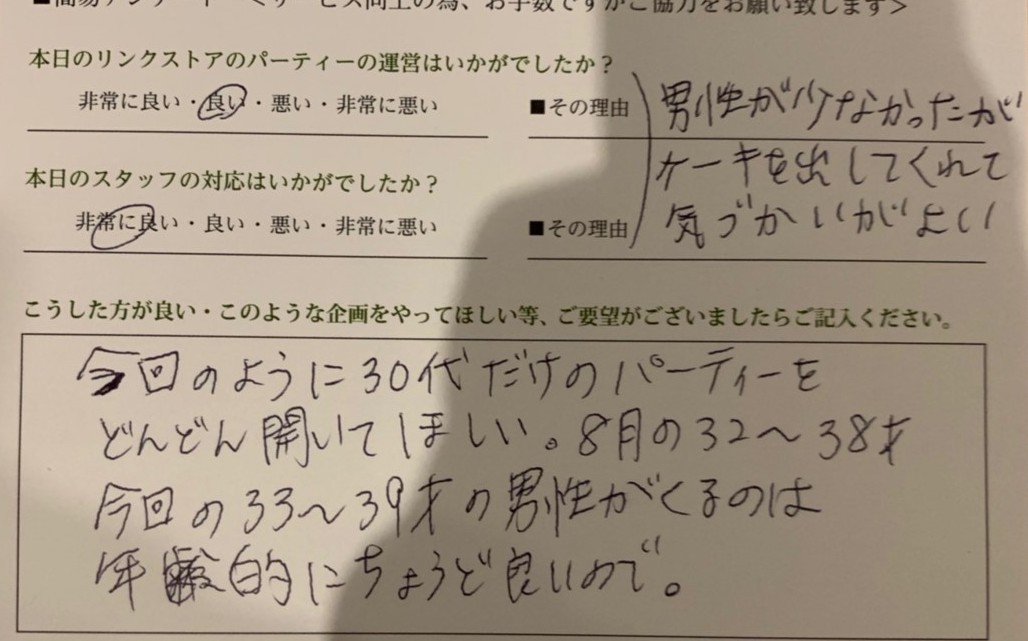 ■簡易アンケート ＜サービス向上の為、お手数ですがご協力をお願い致します＞
本日のリンクストアのパーティーの運営はいかがでしたか？
非常に良い・良い・悪い・非常に悪い ■その理由
男性が少なかったが
ケーキを出してくれて
気づかいがよい
本日のスタッフの対応はいかがでしたか？
非常に良い・良い・悪い・非常に悪い ■その理由
こうした方が良い・このような企画をやってほしい等、ご要望がございましたらご記入ください。
今回のように30代だけのパーティーを
どんどん開いてほしい。8月の32〜38才
今回の33〜39才の男性がくるのは
年齢的にちょうど良いので。